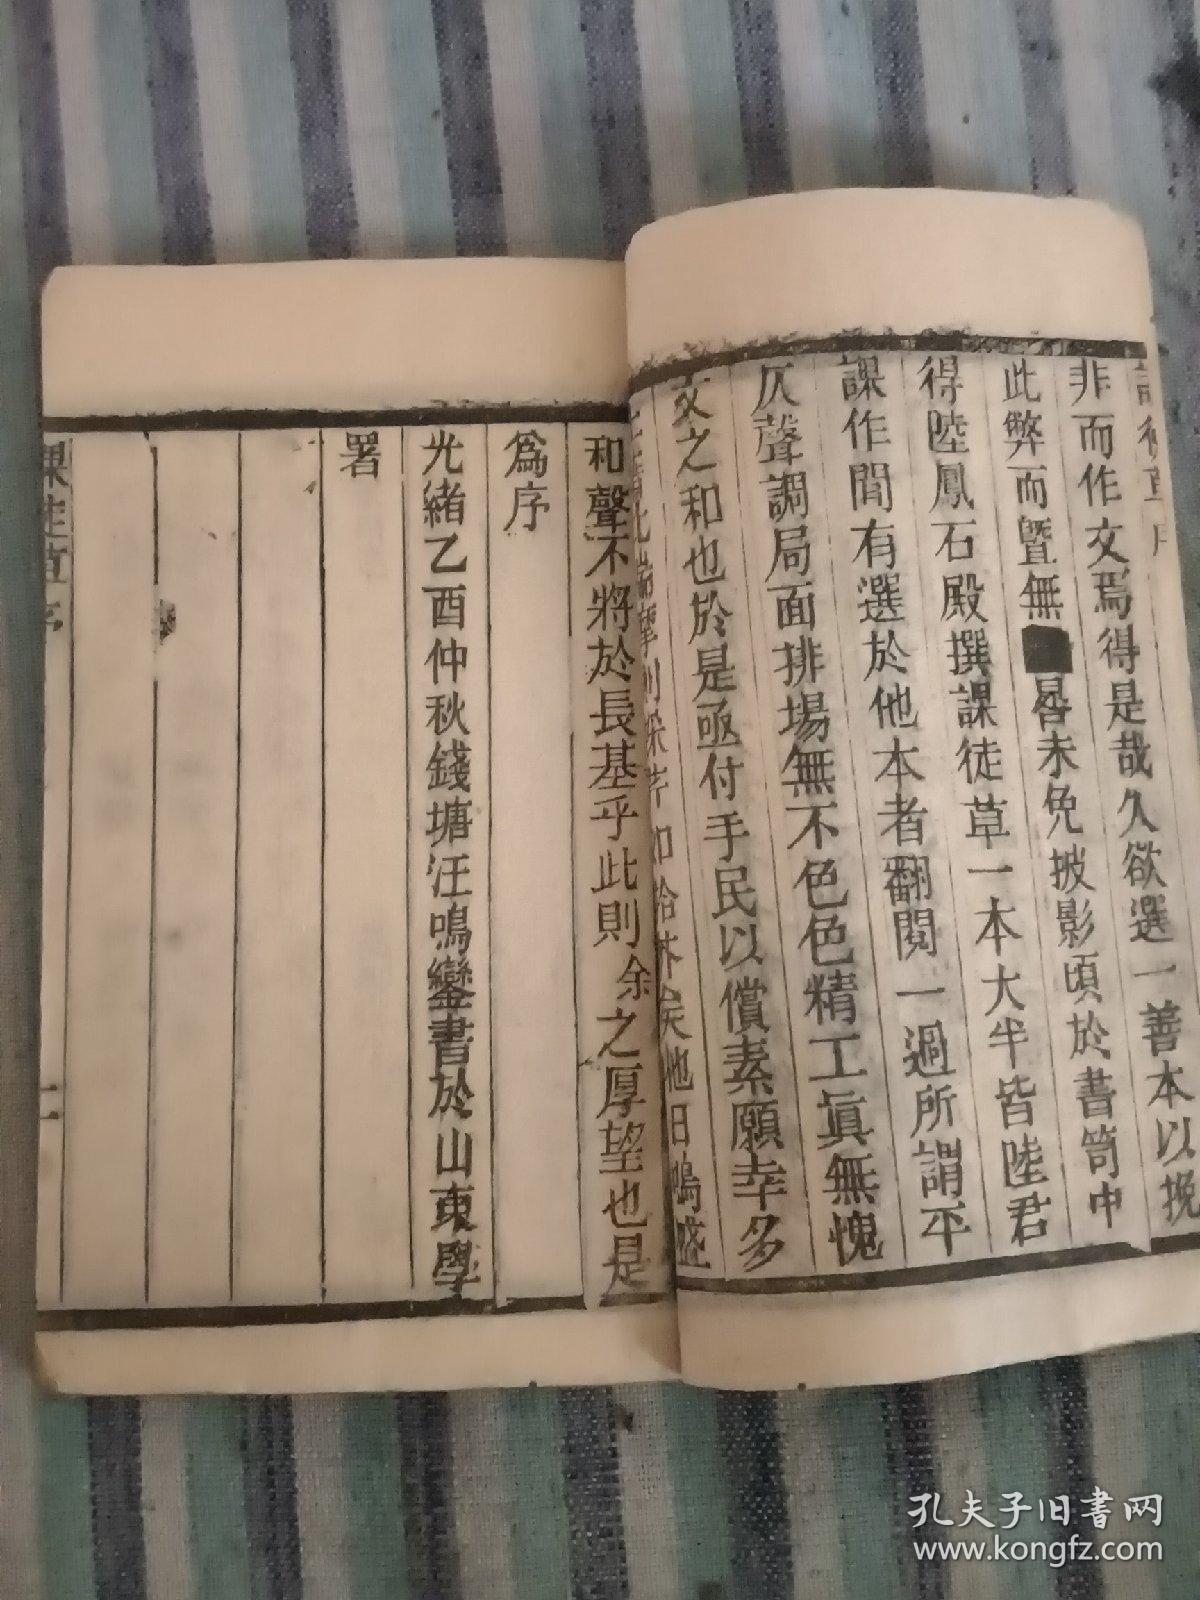 非而作文焉得是哉久欲選一善本以挽
此弊而暨無晷未免披影頃於書笥中
得陸鳳石殿撰課徒草一本大半皆陸君
課作間有選於他本者翻閱一過所謂平
仄聲調局面排場無不色色精工眞無愧
文之和也於是亟付手民以償素願幸多
他日鳴盛
和聲不將於長基乎此則余之厚望也是
爲序
光緒乙酉仲秋錢塘汪鳴鑾書於山東學
署
課徒草序
二
孔夫子旧书网
www.kongfz.com